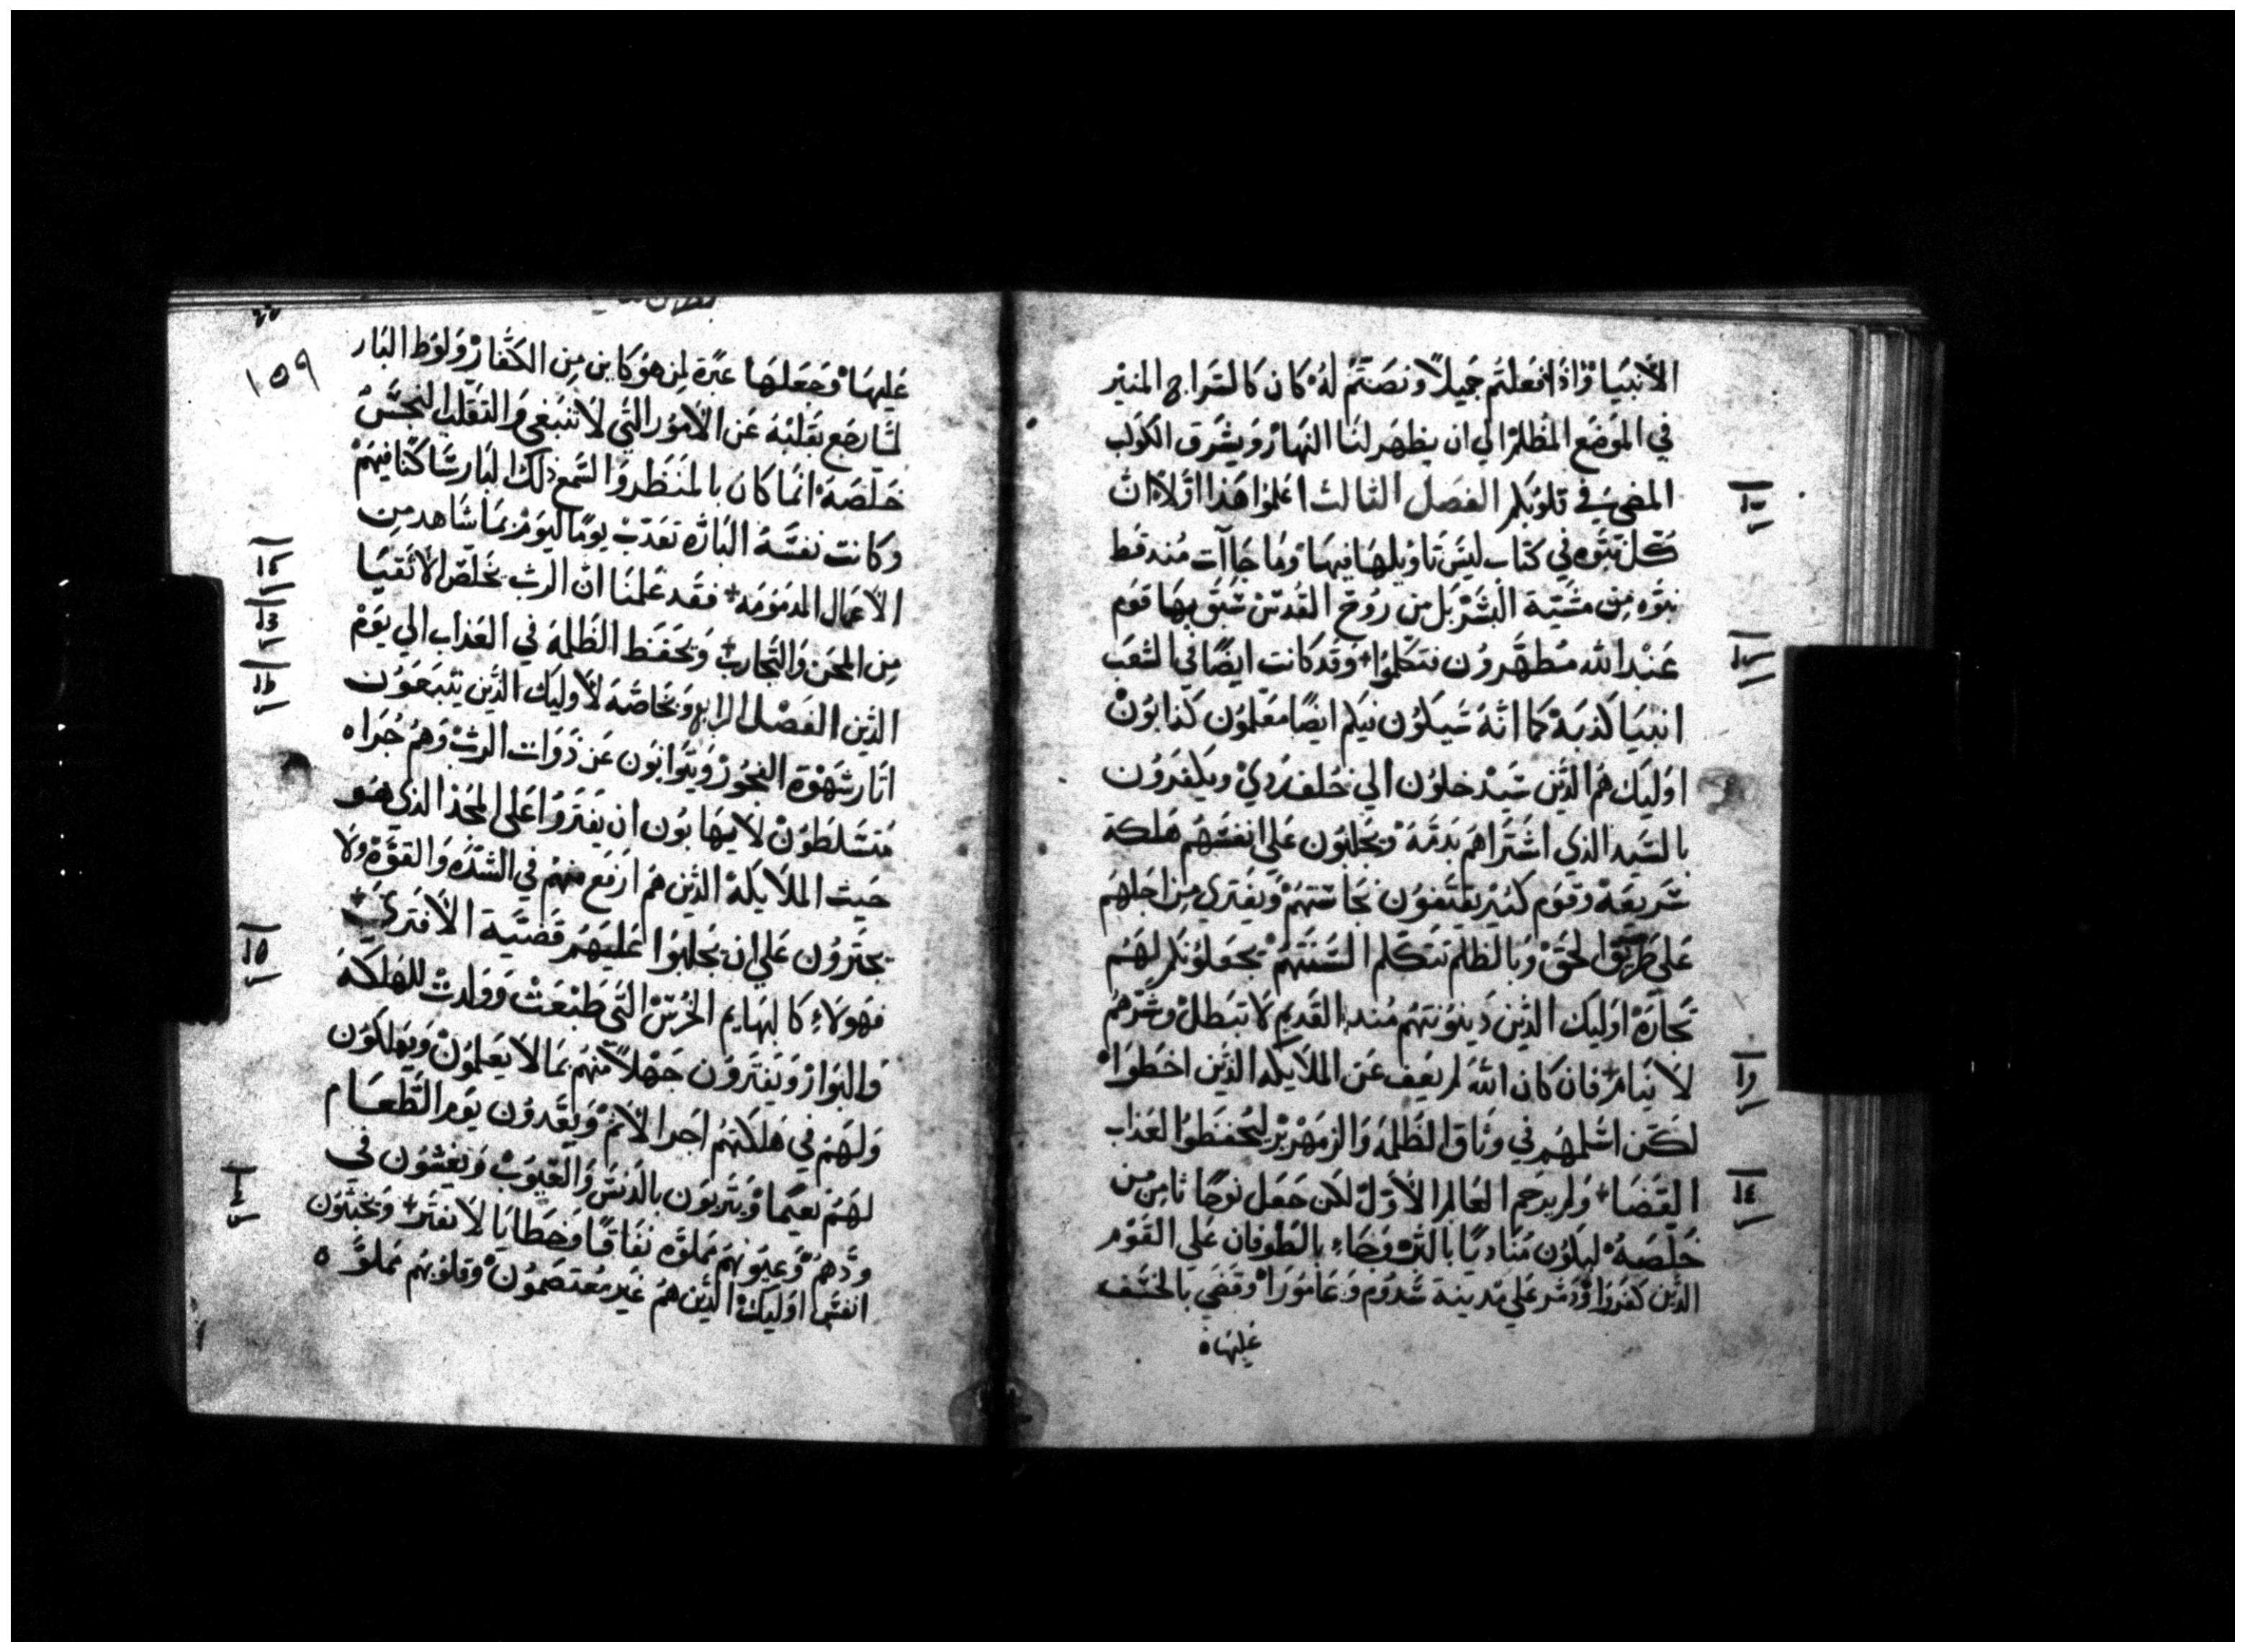 الأنبيا وٕاذا فعلتم جميلاً ونصتم له كان كالسراج المنير
في الموضع المظلم الي ان يظهر لنا النهار ويشرق الكوكب
المضي في قلوبكم الفصل الثالث اعلموا هذا اولاً ان
كل نبوه في كتاب ليس تاويلها فيها وما جاآت مند قط
نبوه من مشية البشر بل من روح القدس سبق بها قوم
عند الله مطهرون نتكلموا وقد كانت ايضًا في الشعب
انبيا كذبة كما انه سيكون فيكم ايضًا معلمون كذابون
اوليك هم الذين سيدخلون الي خلف ردي ويكفرون
بالسيد الذي اشتراهم بدمه ويجلبون علي انفسهم هلكة
سريعة وقوم كثير يقتفون نجاستهم ويفتري من اجلهم
علي طريق الحق وبالظلم تتكلم السنتهم يجعلونكم لهم
تجاره اوليك الذين دينونتهم مند القديم لا تبطل وشرهم
لا ينام فان كان الله لم يعف عن الملايكه الذين اخطوا
لكن اسلمهم في وثاق الظلمه والزمهرير ليحفظوا لعذاب
القضا ولم يرحم العالم الأول لكن جعل نوحًا ثامن من
خلصه ليكون مناديًا بالبر وجاء بالطوفان علي القوم
الذين كفروا ودمر علي مدينة سدوم وعامورا وقضي بالخسف
عليها
١٥٩
عليها وجعلها عبرة لمن هو كاين من الكفار ولوط البار
لما رضع بقلبه عن الأمور التي لا تنبغي والتقلب النجس
خلصه انما كان بالمنظر والسمع ذلك البار ساكنا فيهم
وكانت نفسه الباره تعدب يومًا ليوم بما شاهد من
الأعمال المدمومه فقد علمنا ان الرب يخلص الأتقيا
من المحن والتجارب ويحفظ الظلمه في العذاب الي يوم
الدين الفصل الرابع وبخاصه لأوليك الذين يتبعون
اثار شهوة الفجور ويتوانون عن دوات الرب وهم جراه
متسلطون لا يهابون ان يفتروا علي المجد الذي هو
حيث الملايكة الذين هم ارفع منهم في الشده والقوة ولا
يجترون علي ان يجلبوا عليهم قضية الأفتري
فهولاء كالبهايم الخرس التي طبعت وولدت للهلكة
والبوار ويفترون جهلاً منهم بما لا يعلمون ويهلكون
ولهم في هلكتهم اجر الأثم ويعدون يوم الطعام
لهم نعيما ويتربون بالدنس والعيوب ويعشون في
ودهم وعيونهم مملوه نفاقًا وخطايا لا تفتر ويخبتون
انفس اوليك الذين هم غير معتصمون وقلوبهم مملوه